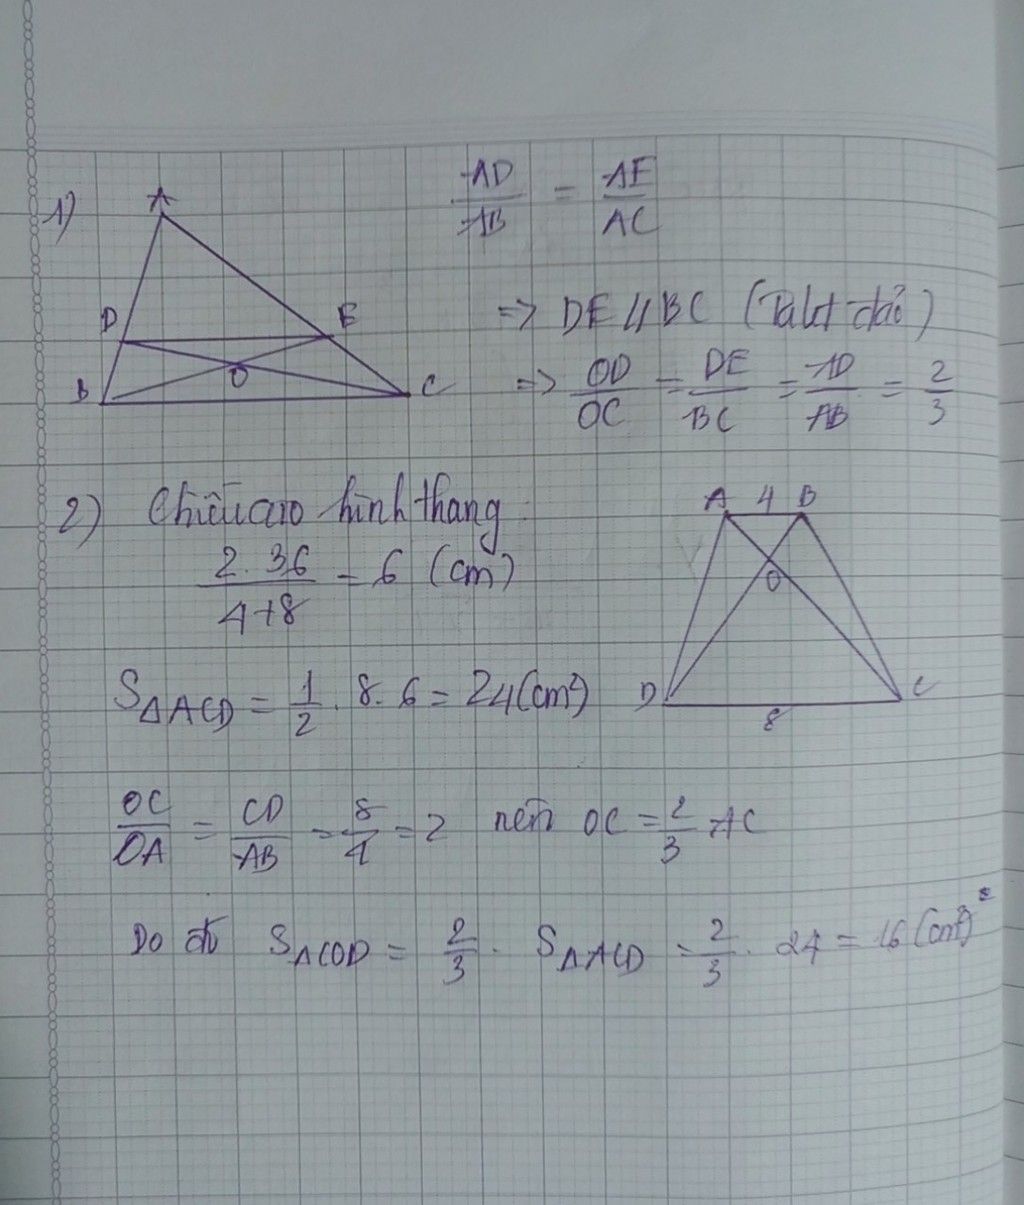 1)
A
D
E
B
O
C
AD/AB = AE/AC
=> DE // BC (Talet đảo)
=> OD/OC = DE/BC = AD/AB = 2/3
2) Chiều cao hình thang
2.36/4+8 = 6 (cm)
A 4 B
O
D
C
8
S△ACD = 1/2 . 8. 6 = 24 (cm²)
OC/OA = CD/AB = 8/4 = 2 nên OC = 2/3 AC
Do đó S△COD = 2/3 . S△ACD = 2/3 . 24 = 16 (cm²)